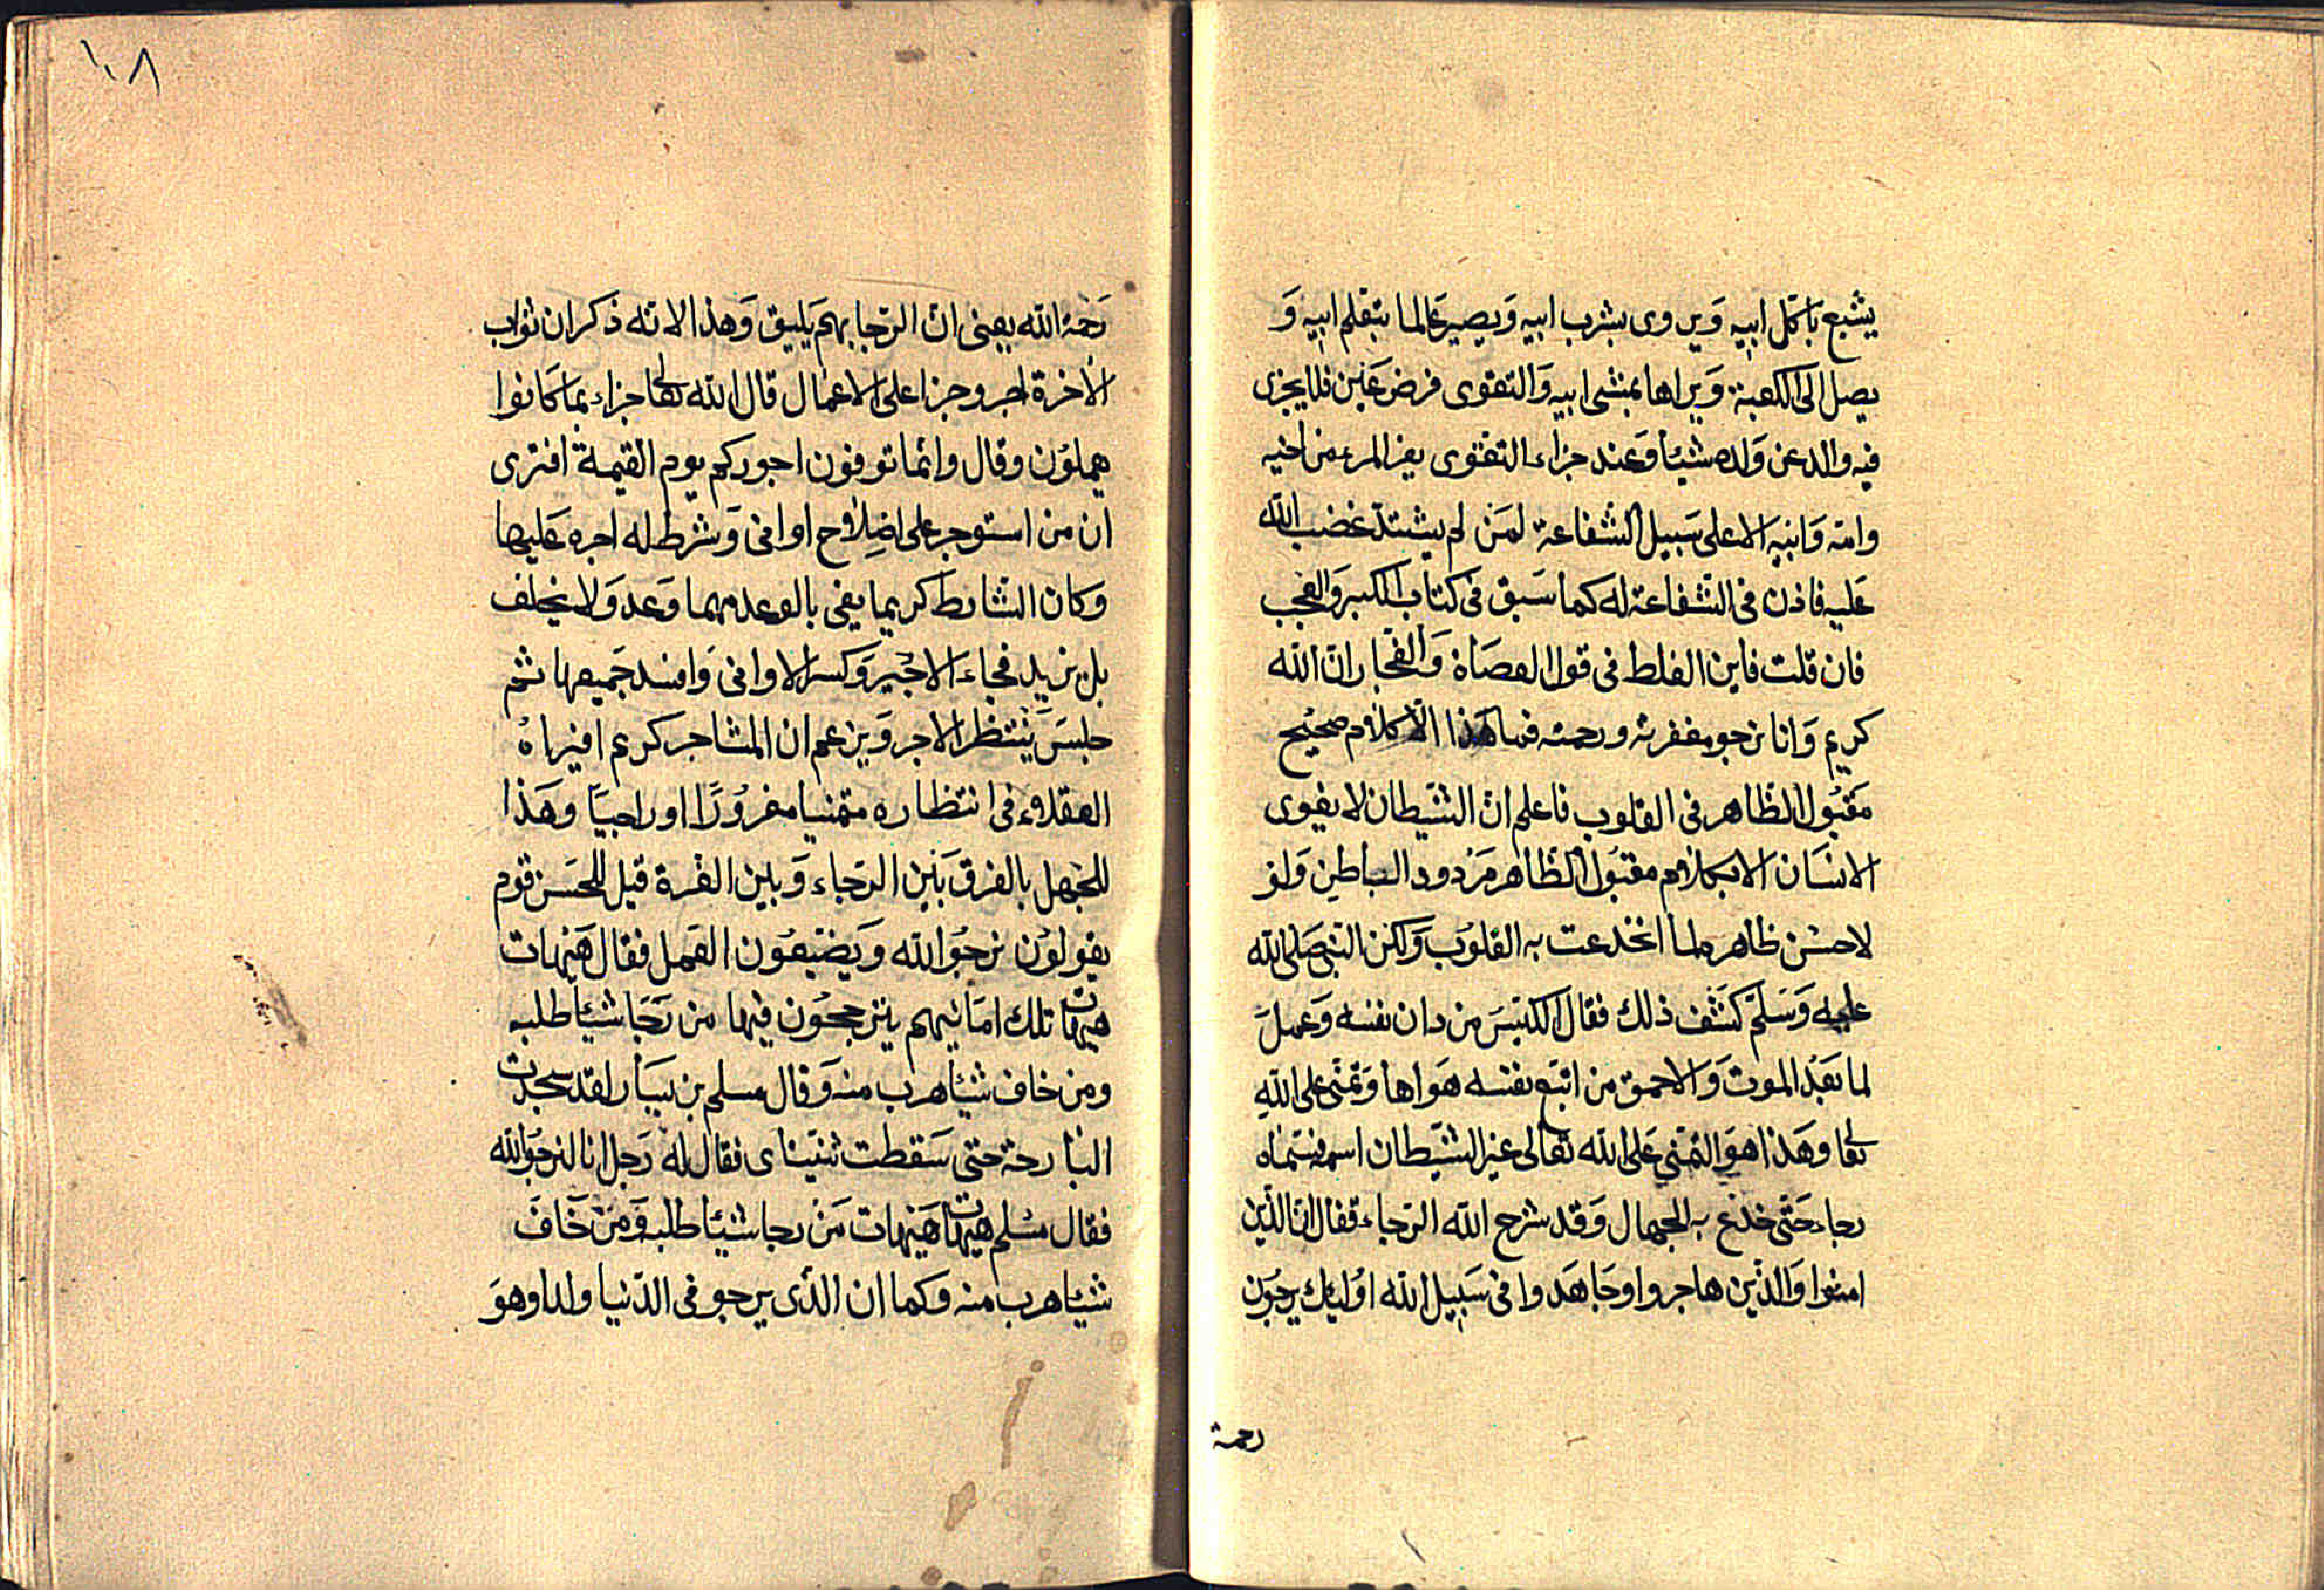 يشبع باكل ابيه ويروى بشرب ابيه ويصير عالما بتعلم ابيه و
يصل الى الكعبة ويراها بمشى ابيه والتقوى فرض عين فلا يجزى
فيه والد عن ولده شيئا وعند جزاء التقوى يفر المرء من اخيه
وامه وابيه الا على سبيل الشفاعة لمن لم يشتد غضب الله
عليه فاذن فى الشفاعة له كما سبق فى كتاب الكبر والعجب
فان قلت فاين الغلط فى قول العصاة والفجار ان الله
كريم وانا نرجو مغفرته ورحمته فما هذا الا كلام صحيح
مقبول الظاهر فى القلوب فاعلم ان الشيطان لا يغوى
الانسان الا بكلام مقبول الظاهر مردود الباطن ولو
لا حسن ظاهره لما انخدعت به القلوب ولكن النبى صلى الله
عليه وسلم كشف ذلك فقال الكيس من دان نفسه وعمل
لما بعد الموت والاحمق من اتبع نفسه هواها وتمنى على الله
تعا وهذا هو التمنى على الله تعالى غير الشيطان اسمه فسماه
رجاء حتى خدع به الجهال وقد شرح الله الرجاء فقال ان الذين
امنوا والذين هاجروا وجاهدوا فى سبيل الله اولئك يرجون
رحمة
١٠٨
رحمة الله يعنى ان الرجا بهم يليق وهذا لانه ذكر ان ثواب
الاخرة اجر وجزا على الاعمال قال الله تعا جزاء بما كانوا
يعملون وقال وانما توفون اجوركم يوم القيمة افترى
ان من استوجر على اصلاح اوانى وشرط له اجره عليها
وكان الشارط كريما يفى بالوعد مهما وعد ولا يخلف
بل يزيد فجاء الاجير وكسر الاوانى وافسد جميعها ثم
جلس ينتظر الاجر ويزعم ان المشاجر كريم افيراه
العقلاء فى انتظاره متمنيا مغرورا او راجيا وهذا
للجهل بالفرق بين الرجاء وبين الغرة قيل للحسن قوم
يقولون نرجو الله ويضيعون العمل فقال هيهات
هيهات تلك امانيهم يترجحون فيها من رجا شيئا طلبه
ومن خاف شيئا هرب منه وقال مسلم بن يسار لقد سجدت
البارحة حتى سقطت ثنيتاى فقال له رجل انا لنرجو الله
فقال مسلم هيهات هيهات من رجا شيئا طلبه ومن خاف
شيئا هرب منه وكما ان الذى يرجو فى الدنيا ولدا وهو